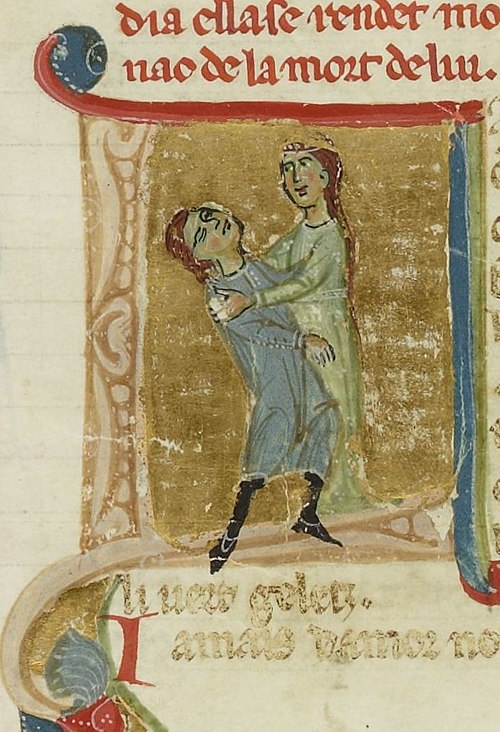 dia ellase rendet mo
nao de la mort de lui.
li uers gelets.
Iamais damor no